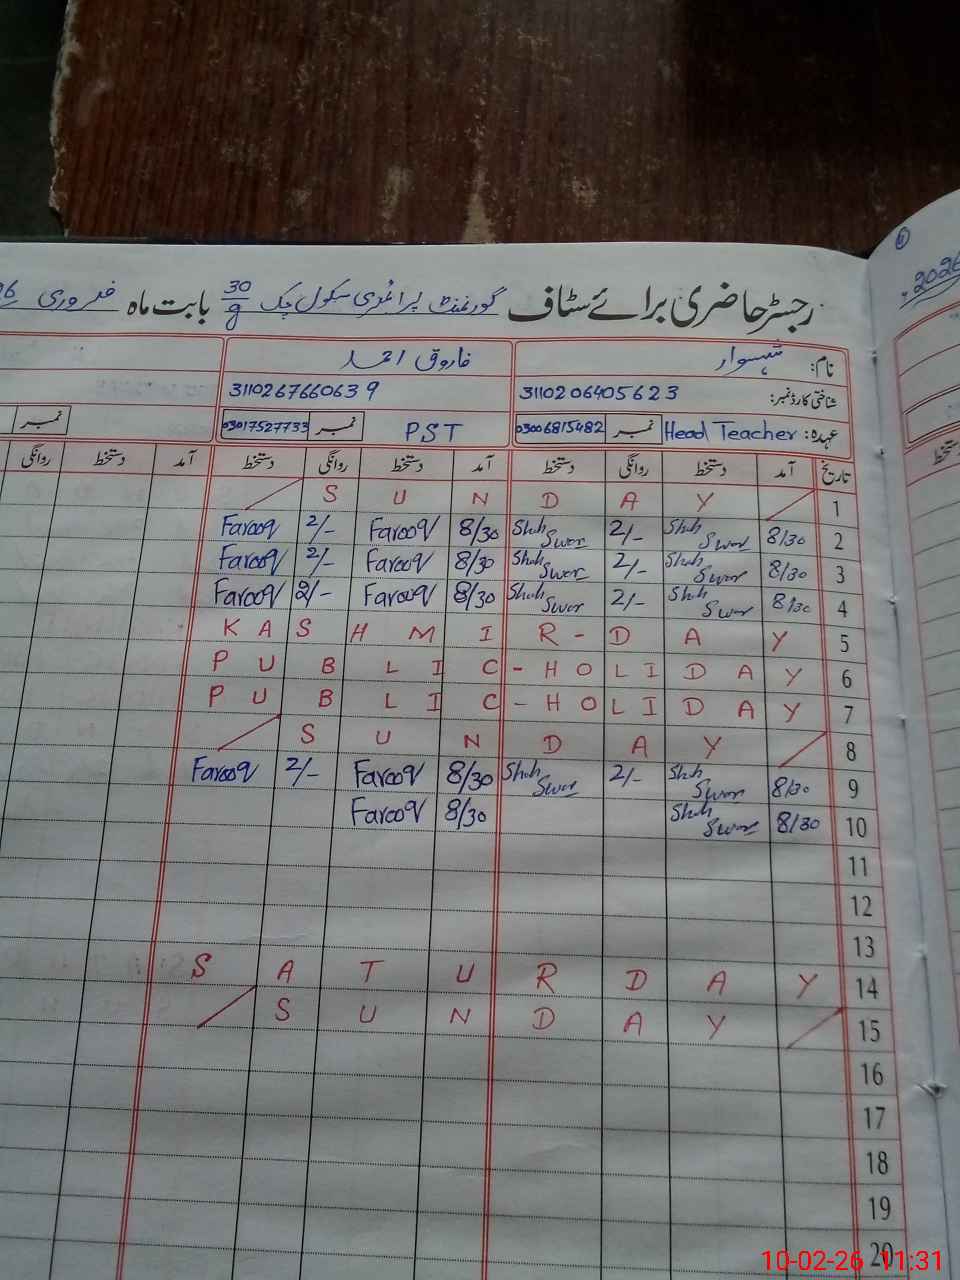 رجسٹر حاضری برائے سٹاف گورنمنٹ پرائمری سکول چک 30/g بابت ماہ فروری
2026
نام: شہسوار فاروق احمد
شناختی کارڈ نمبر: 3110206405623 3110267660639
عہدہ: Head Teacher نمبر 03006815482 PST نمبر 03017527733 نمبر
تاریخ آمد دستخط روانگی دستخط آمد دستخط روانگی دستخط آمد دستخط روانگی
دستخط
S U N D A Y 1
Farooq 2/- Farooq 8/30 Shah Swar 2/- Shah Swar 8/30 2
Farooq 2/- Farooq 8/30 Shah Swar 2/- Shah Swar 8/30 3
Farooq 2/- Farooq 8/30 Shah Swar 2/- Shah Swar 8/30 4
K A S H M I R - D A Y 5
P U B L I C - H O L I D A Y 6
P U B L I C - H O L I D A Y 7
S U N D A Y 8
Farooq 2/- Farooq 8/30 Shah Swar 2/- Shah Swar 8/30 9
Farooq 8/30 Shah Swar 8/30 10
11
12
13
S A T U R D A Y 14
S U N D A Y 15
16
17
18
19
20
10-02-26 11:31